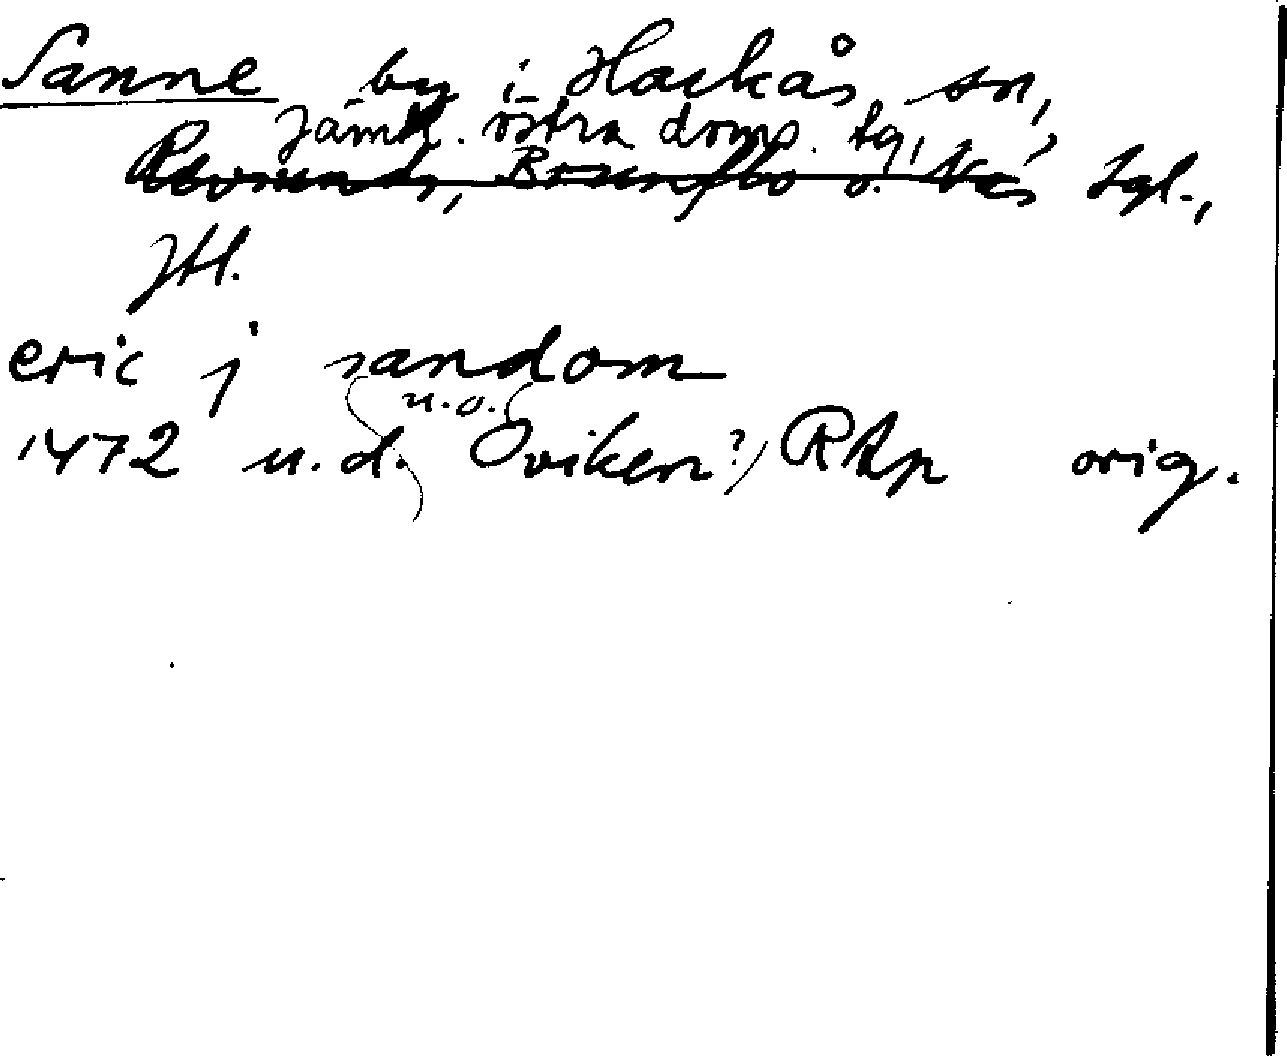 Sanne by i Hackås sn,
Jämtl. östra doms. tg,
Revsunds, Brunflo o. Näs tgl.,
Jtl.
eric j sandom
u.o.
1472 u.d. Oviken?, RAp orig.